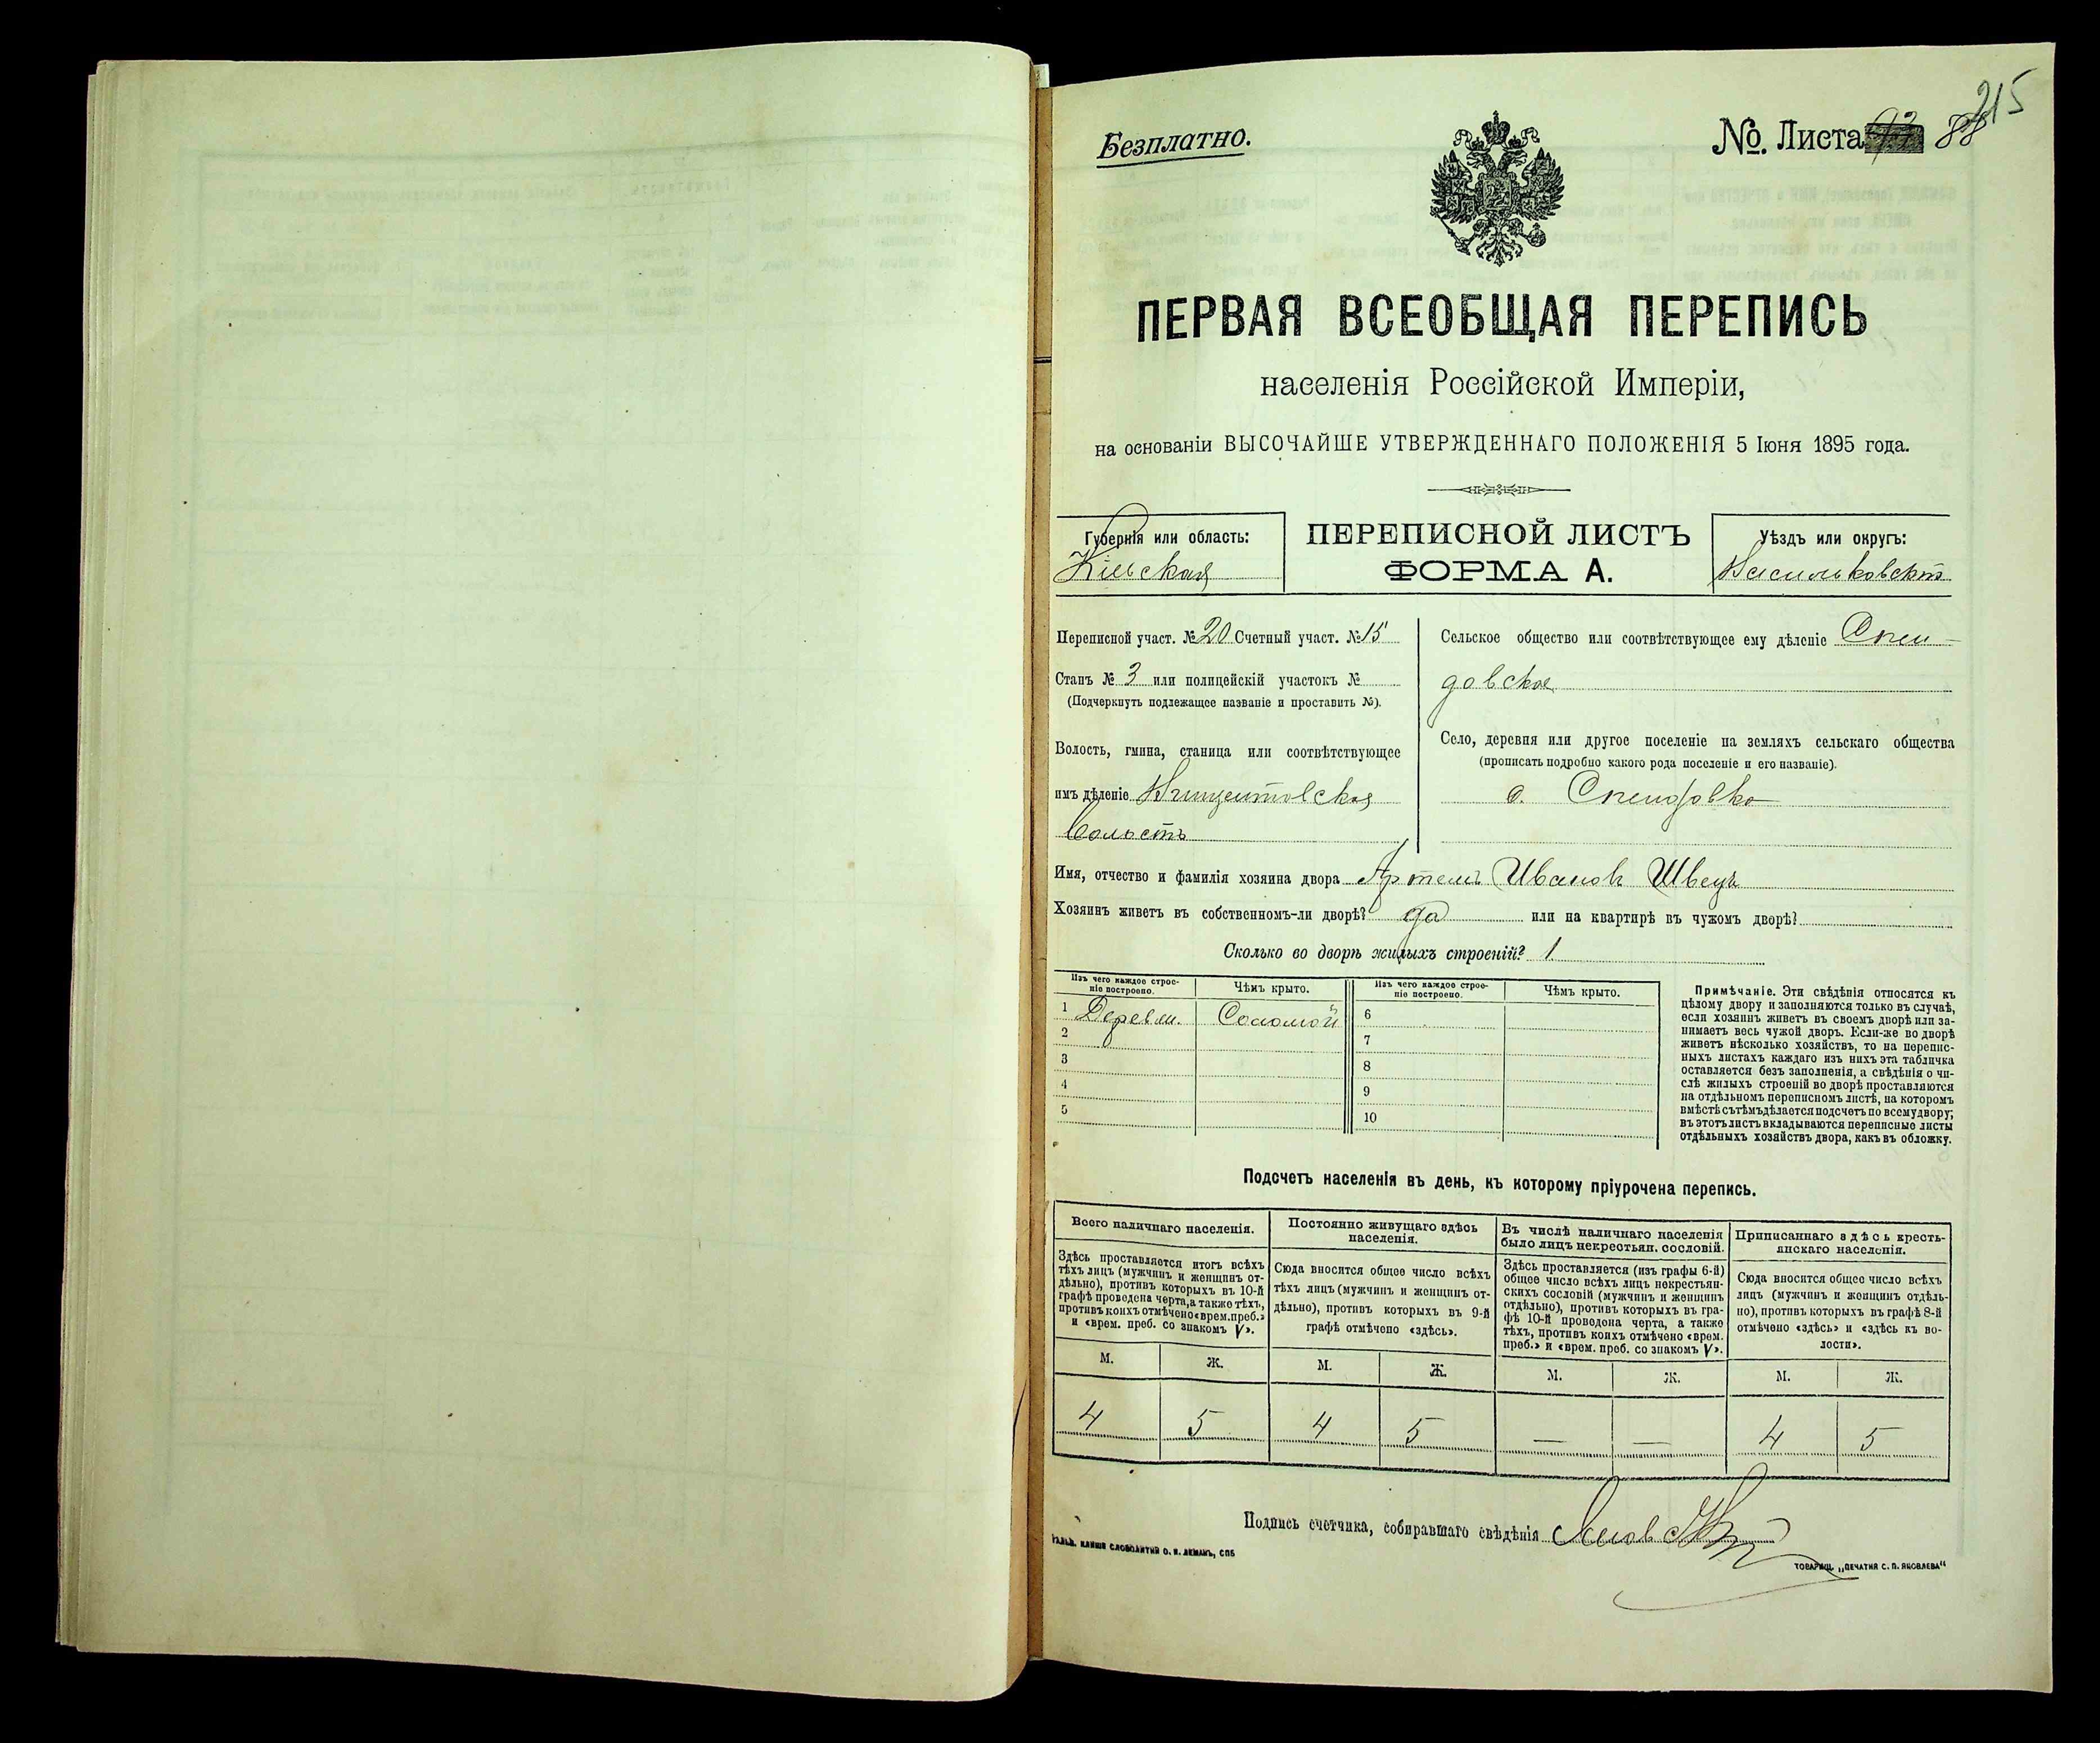 215
Безплатно.
№. Листа 88
ПЕРВАЯ ВСЕОБЩАЯ ПЕРЕПИСЬ
населенія Россійской Имперіи,
на основаніи ВЫСОЧАЙШЕ УТВЕРЖДЕННАГО ПОЛОЖЕНІЯ 5 Іюня 1895 года.
Губернія или область:
Кіевская
ПЕРЕПИСНОЙ ЛИСТЪ
ФОРМА А.
Уѣздъ или округъ:
Васильковскій
Переписной участ. № 20 Счетный участ. № 15
Станъ № 3 или полицейскій участокъ №
(Подчеркнуть подлежащее названіе и проставить №).
Волость, гмина, станица или соотвѣтствующее
имъ дѣленіе Винцентовская
Волость
Сельское общество или соотвѣтствующее ему дѣленіе
довское
Село, деревня или другое поселеніе на земляхъ сельскаго общества
(прописать подробно какого рода поселеніе и его названіе).
с.
Имя, отчество и фамилія хозяина двора Артемъ Иванов Швецъ
Хозяинъ живетъ въ собственномъ-ли дворѣ? да или на квартирѣ въ чужомъ дворѣ?
Сколько во дворѣ жилыхъ строеній? 1
Изъ чего каждое строе-
ніе построено.
Чѣмъ крыто.
Изъ чего каждое строе-
ніе построено.
Чѣмъ крыто.
1 Деревян. Соломой 6
2 7
3 8
4 9
5 10
Примѣчаніе. Эти свѣдѣнія относятся къ
цѣлому двору и заполняются только въ случаѣ,
если хозяинъ живетъ въ своемъ дворѣ или за-
нимаетъ весь чужой дворъ. Если-же во дворѣ
живетъ нѣсколько хозяйствъ, то на перепис-
ныхъ листахъ каждаго изъ нихъ эта табличка
оставляется безъ заполненія, а свѣдѣнія о чи-
слѣ жилыхъ строеній во дворѣ проставляются
на отдѣльномъ переписномъ листѣ, на которомъ
вмѣстѣ съ тѣмъ дѣлается подсчетъ по всему двору;
въ этотъ листъ вкладываются переписные листы
отдѣльныхъ хозяйствъ двора, какъ въ обложку.
Подсчетъ населенія въ день, къ которому пріурочена перепись.
Всего наличнаго населенія.
Здѣсь проставляется итогъ всѣхъ
тѣхъ лицъ (мужчинъ и женщинъ от-
дѣльно), противъ которыхъ въ 10-й
графѣ проведена черта, а также тѣхъ,
противъ коихъ отмѣчено «врем. преб.»
и «врем. преб. со знакомъ V».
Постоянно живущаго здѣсь
населенія.
Сюда вносится общее число всѣхъ
тѣхъ лицъ (мужчинъ и женщинъ от-
дѣльно), противъ которыхъ въ 9-й
графѣ отмѣчено «здѣсь».
Въ числѣ наличнаго населенія
было лицъ некрестьян. сословій.
Здѣсь проставляется (изъ графы 6-й)
общее число всѣхъ лицъ некрестьян-
скихъ сословій (мужчинъ и женщинъ
отдѣльно), противъ которыхъ въ гра-
фѣ 10-й проведена черта, а также
тѣхъ, противъ коихъ отмѣчено «врем.
преб.» и «врем. преб. со знакомъ V».
Приписаннаго здѣсь кресть-
янскаго населенія.
Сюда вносится общее число всѣхъ
лицъ (мужчинъ и женщинъ отдѣль-
но), противъ которыхъ въ графѣ 8-й
отмѣчено «здѣсь» и «здѣсь къ во-
лости».
М. Ж. М. Ж. М. Ж. М. Ж.
4 5 4 5 — — 4 5
Подпись счетчика, собиравшаго свѣдѣнія
КЛИШЕ СЛОВОЛИТНИ О. И. ЛЕМАНЪ, СПБ
ТОВАРИЩ. „ПЕЧАТНЯ С. П. ЯКОВЛЕВА“